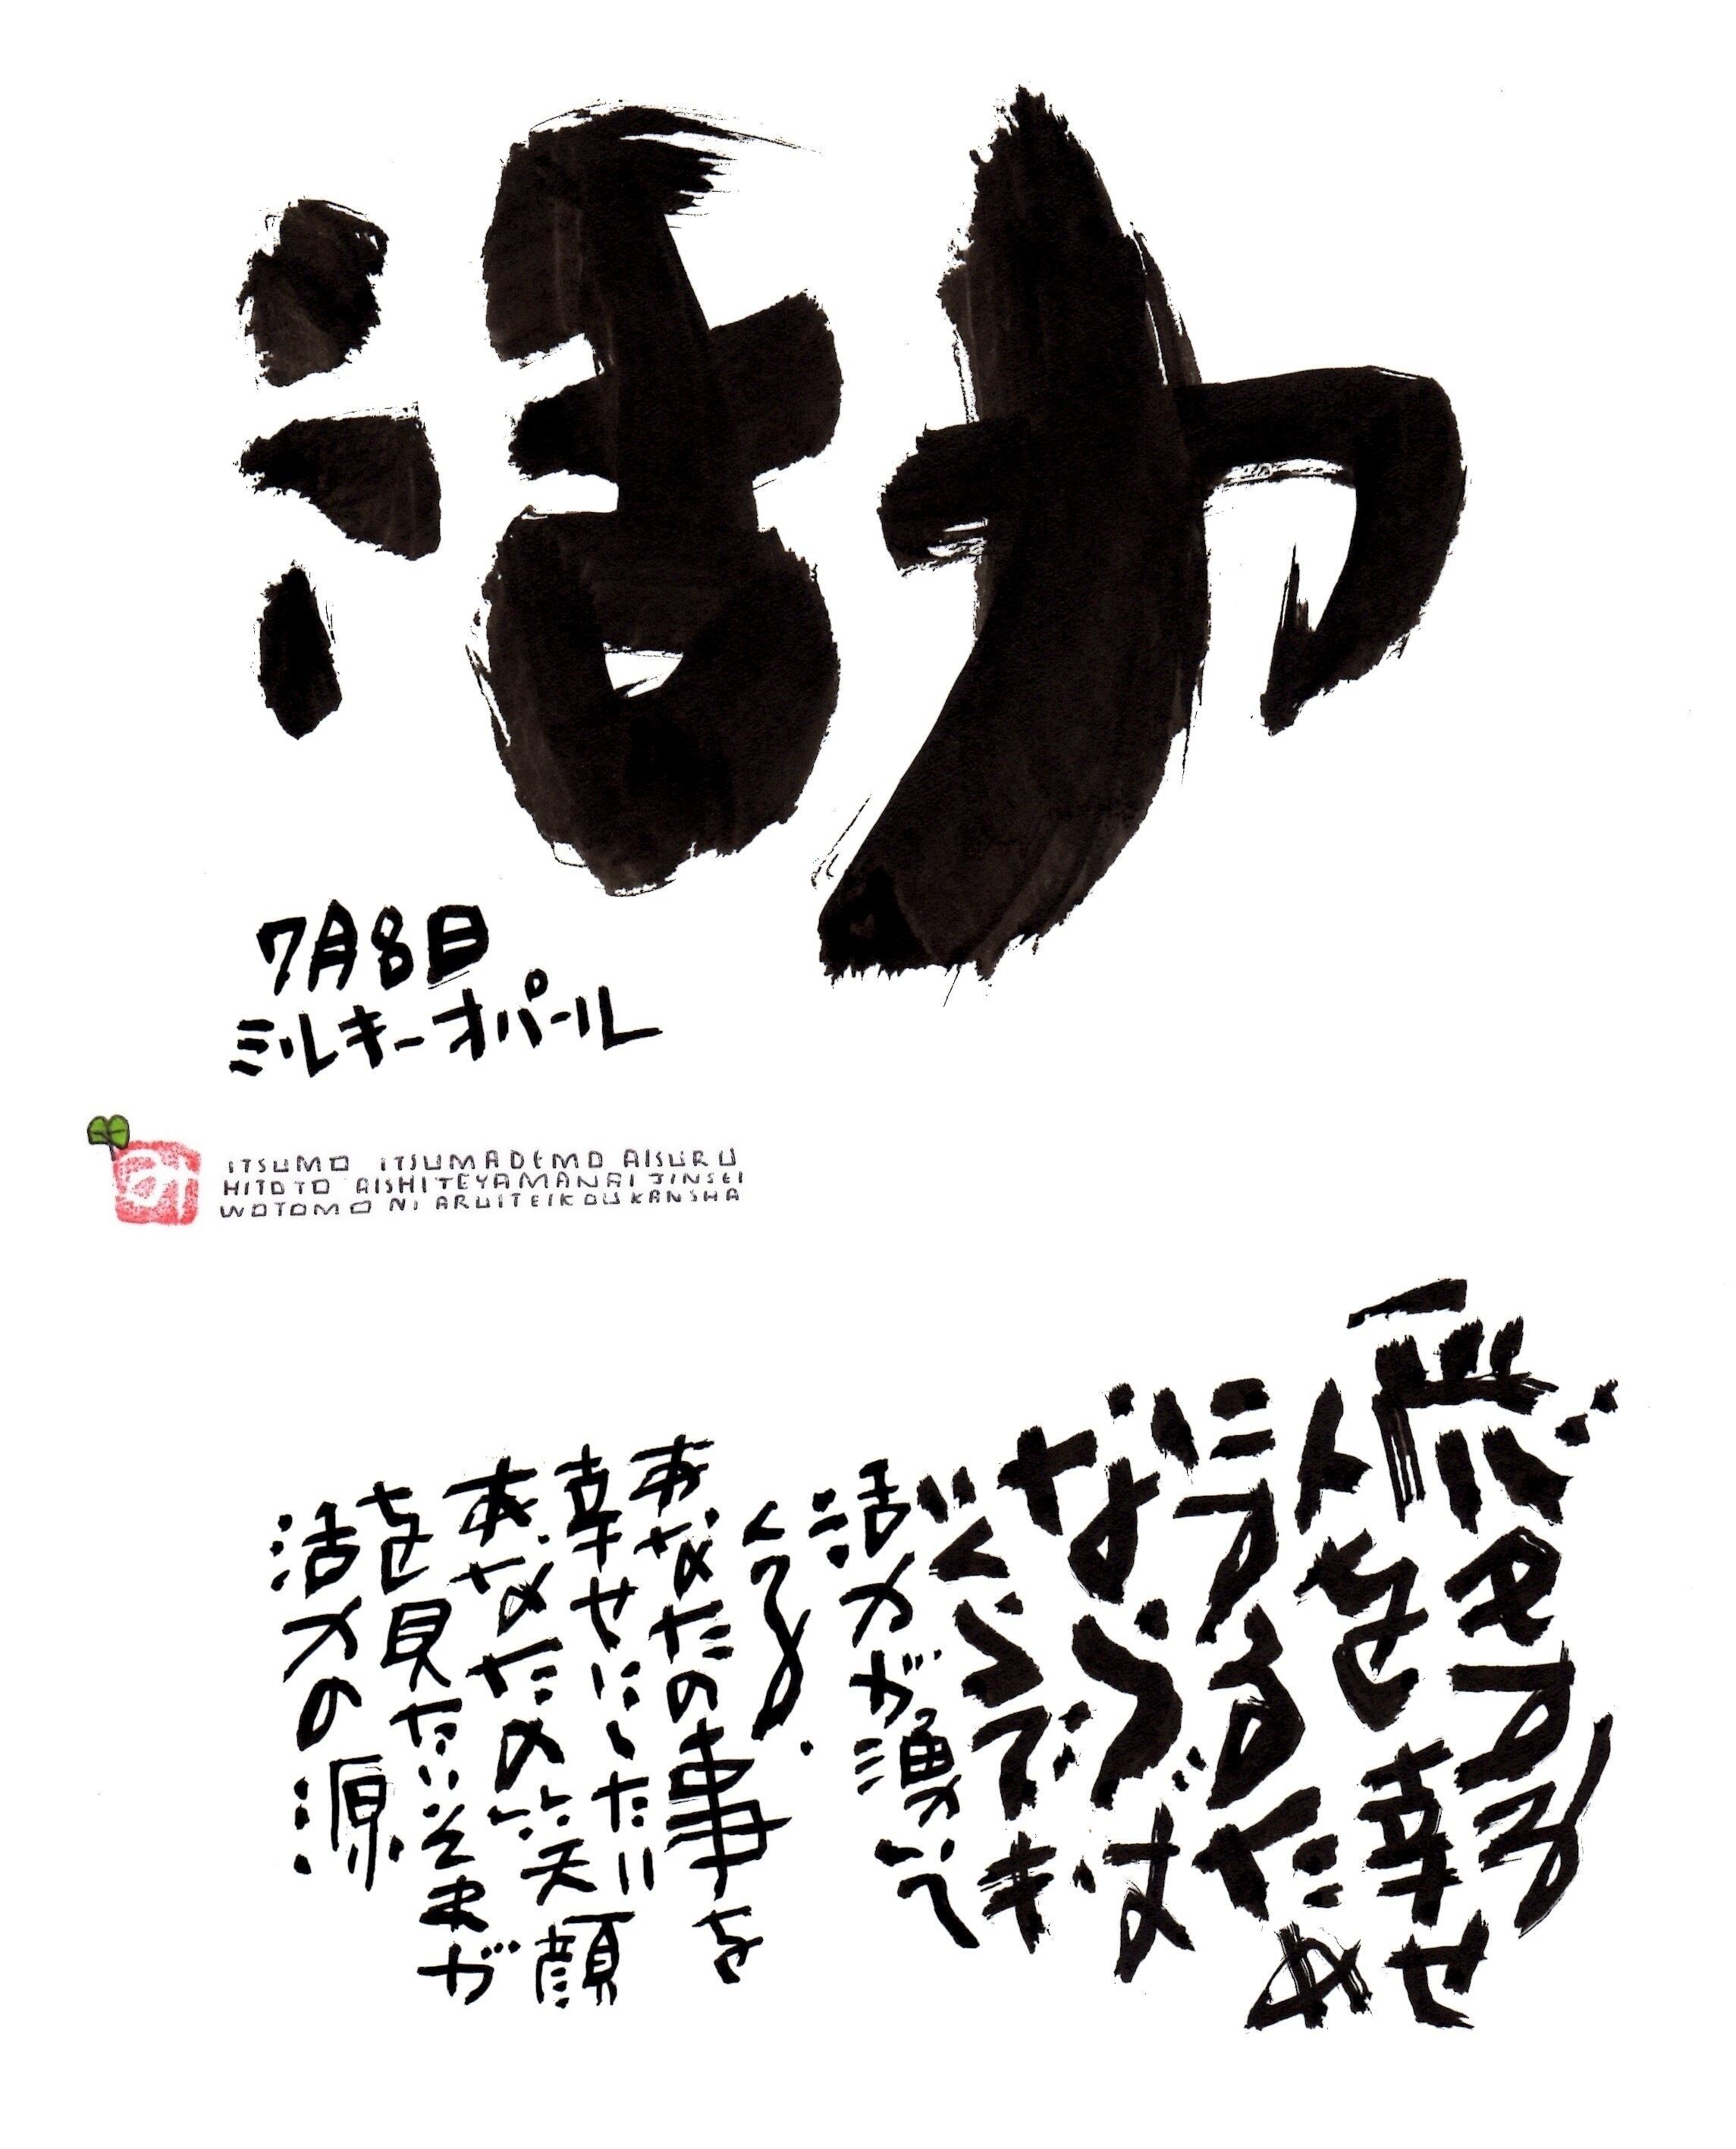 活力
7月8日
ミルキーオパール
ITSUMO ITSUMADEMO AISURU
HITOTO AISHITEYAMANAI JINSEI
WOTOMO NI ARUITEIKOU KANSHA
愛する
人を幸せ
にするため
ならば
いくらでも
活力が湧いて
くる.
あなたの事を
幸せにしたい
あなたの笑顔
を見たいそれが
活力の源